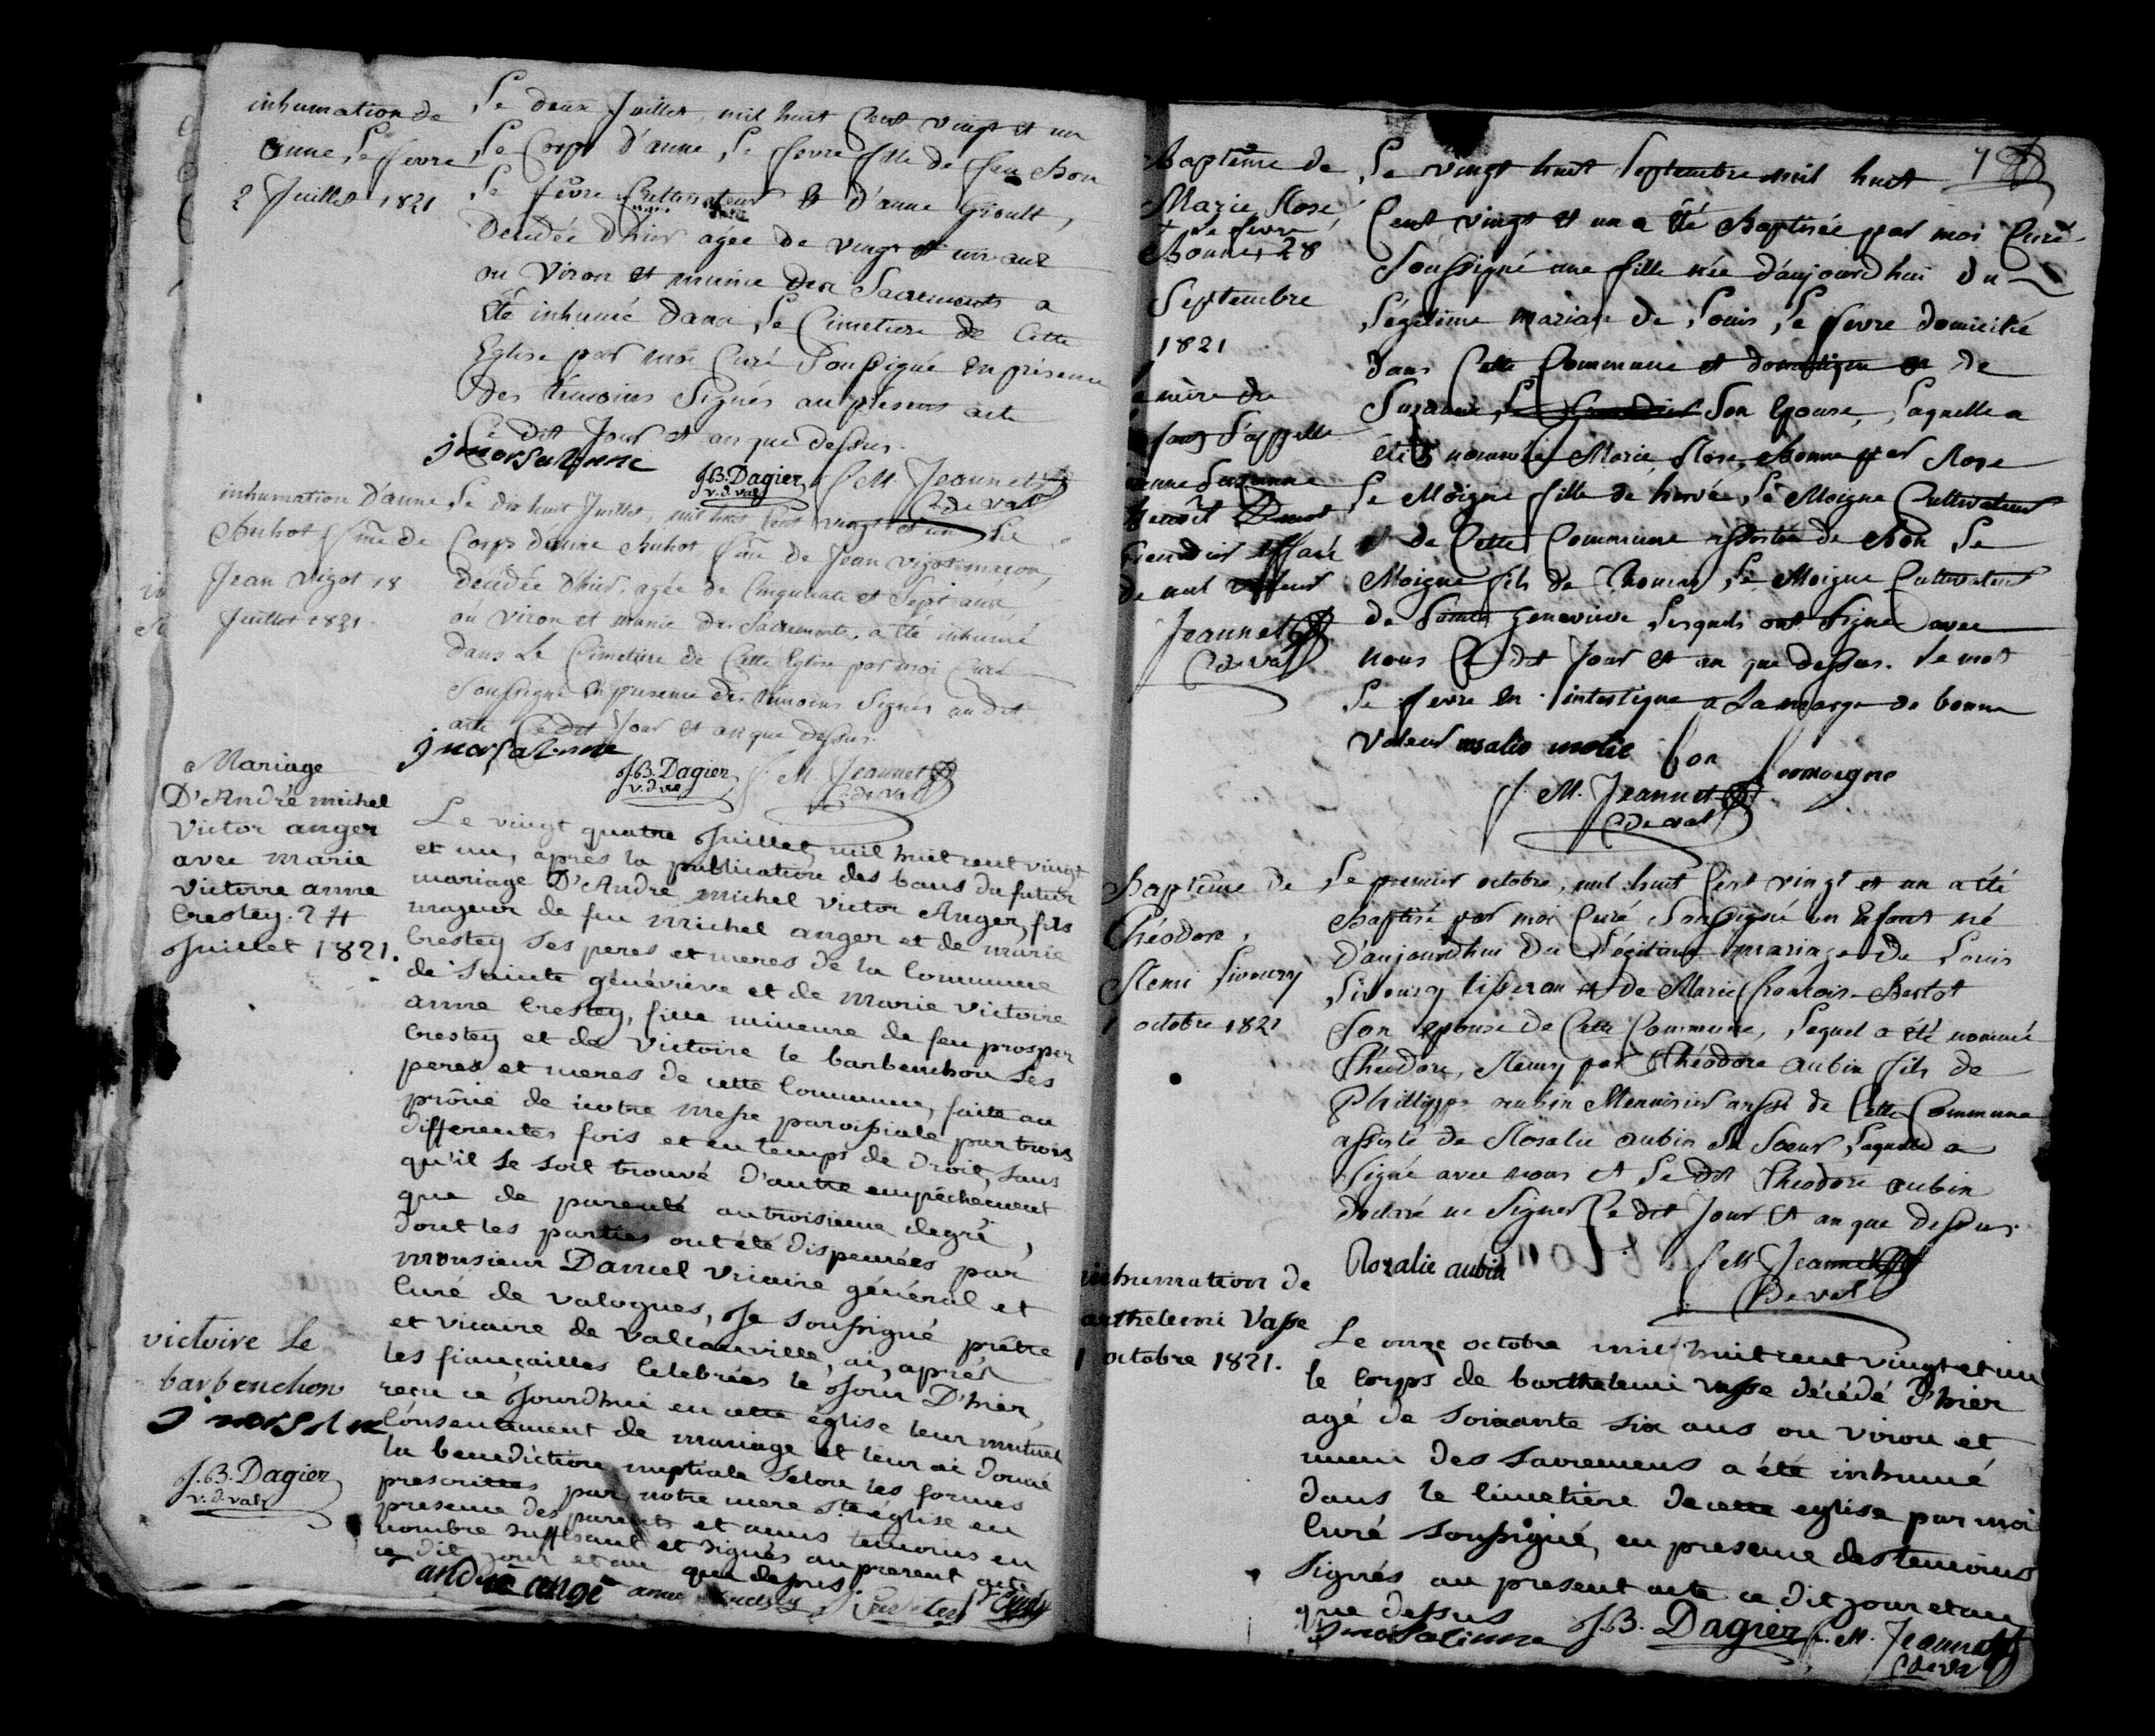 inhumation de
anne Le fevre
2 Juillet 1821
Le deux Juillet, mil huit Cent vingt et un
Le Corps d'anne Le fevre fille de feu Bon
Le fevre Cultivateur & d'anne Gioult,
Décédée d'hier agée de vingt et un ans
ou viron et munie des Sacrements a
Eté inhumé dans Le Cimetiere de Cette
Eglise par moi Curé Soussigné En présence
des témoins Signés au présent acte
Ce dit Jour et an que dessus.
J.B. Dagier
v. d. val
f M. Jeannet
C de val
inhumation d'anne
Buhot fme de
Jean Vigot 18
Juillet 1821.
Le dix huit Juillet, mil huit Cent vingt et un Le
Corps d'anne Buhot fme de Jean Vigot macon,
décédée d'hier, agée de Cinquante et Sept ans
ou viron et munie des Sacrements, a Eté inhumé
dans Le Cimetiere de Cette Eglise par moi Curé
Soussigné En présence des témoins Signés au dit
acte Ce dit Jour et an que dessus.
J.B. Dagier
v. d. val
f. M. Jeannet
C. de val
Mariage
D'André michel
Victor anger
avec marie
Victoire anne
Crestey. 24
Juillet 1821.
Le vingt quatre Juillet, mil huit cent vingt
et un, après la publication des bans du futur
mariage D'André michel victor Anger, fils
majeur de feu michel anger et de marie
Crestey ses peres et meres de la Commune
de Sainte généviève et de marie victoire
anne Crestey, fille mineure de feu prosper
Crestey et de victoire le barbenchon ses
peres et meres de cette Commune, faite au
prône de notre messe paroissiale par trois
differentes fois et en temps de droit, sans
qu'il se soit trouvé d'autre empêchement
que de parenté au troisieme degré,
dont les parties ont été dispensées par
monsieur Daniel vicaire général et
Curé de valognes, Je soussigné prêtre
et vicaire de valcanville, ai, après
les fiançailles Celebrées le Jour D'hier,
reçu ce Jourdhui en cette église leur mutuel
Consentement de mariage et leur ai donné
la benediction nuptiale selon les formes
prescrittes par notre mere Ste église en
presence des parents et amis temoins en
nombre suffisant et signés au present acte
ce dit jour et an que dessus.
victoire Le
barbenchon
J.B. Dagier
v. d. val
andré angé
7
Baptême de
Marie Rose
Le fevre
Bonne, 28
Septembre
1821
Le vingt huit Septembre mil huit
Cent vingt et un a Eté Baptisée par moi Curé
Soussigné une fille née d'aujourd'hui du
Légitime mariage de Louis Le fevre domicilié
dans Cette Commune et de
Suzanne Son Epouse, Laquelle a
été nommée Marie Rose Bonne par Rose
Le Moigne fille de hervée Le Moigne Cultivateur
de Cette Commune assistée de Bon Le
Moigne fils de Thomas Le Moigne Cultivateur
de Sainte Genevieve Lesquels ont Signé avec
nous Ce dit Jour et an que dessus. Le mot
Le fevre en interligne a La marge de bonne
valeur
mère de
s'appelle
Suzanne
Benoit
de nul valeur
Jeannet
C de val
bon lemoigne
f. M. Jeannet
C de val
Baptême de
Théodore,
Remi Sivoury
1 octobre 1821
Le premier octobre, mil huit Cent vingt et un a été
Baptisé par moi Curé Soussigné un Enfant né
D'aujourd'hui du Légitime mariage de Louis
Sivoury tisseran et de Marie francois Bertot
Son epouse de Cette Commune, Lequel a été nommé
Théodore, Remy par Théodore aubin fils de
Phillippe aubin Menuisier aussi de Cette Commune
assisté de Rosalie aubin Sa Soeur, Laquelle a
Signé avec nous et Le dit Théodore aubin
declaré ne Signer Ce dit Jour et an que dessus.
Rozalie aubin
f M Jeannet
C de val
inhumation de
barthelemi Vasse
11 octobre 1821.
Le onze octobre mil huit cent vingt et un
le Corps de barthelemi vasse décédé d'hier
agé de soixante six ans ou viron et
muni des sacremens a été inhumé
dans le Cimetière de cette eglise par moi
Curé soussigné, en presence des temoins
signés au present acte ce dit jour et an
que dessus
J.B. Dagier
f. M. Jeannet
C de val